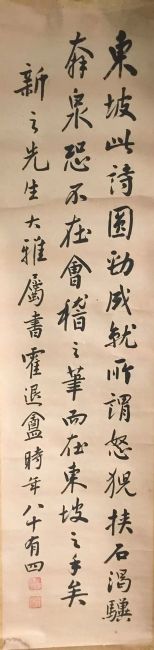 東坡此詩圓勁成就所謂怒猊抉石渴驥
奔泉恐不在會稽之筆而在東坡之手矣
新之先生大雅屬書霍退盦時年八十有四